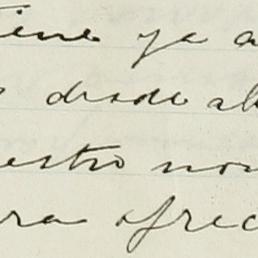 tiene ya a
desde al
estro nom
ra ofrec